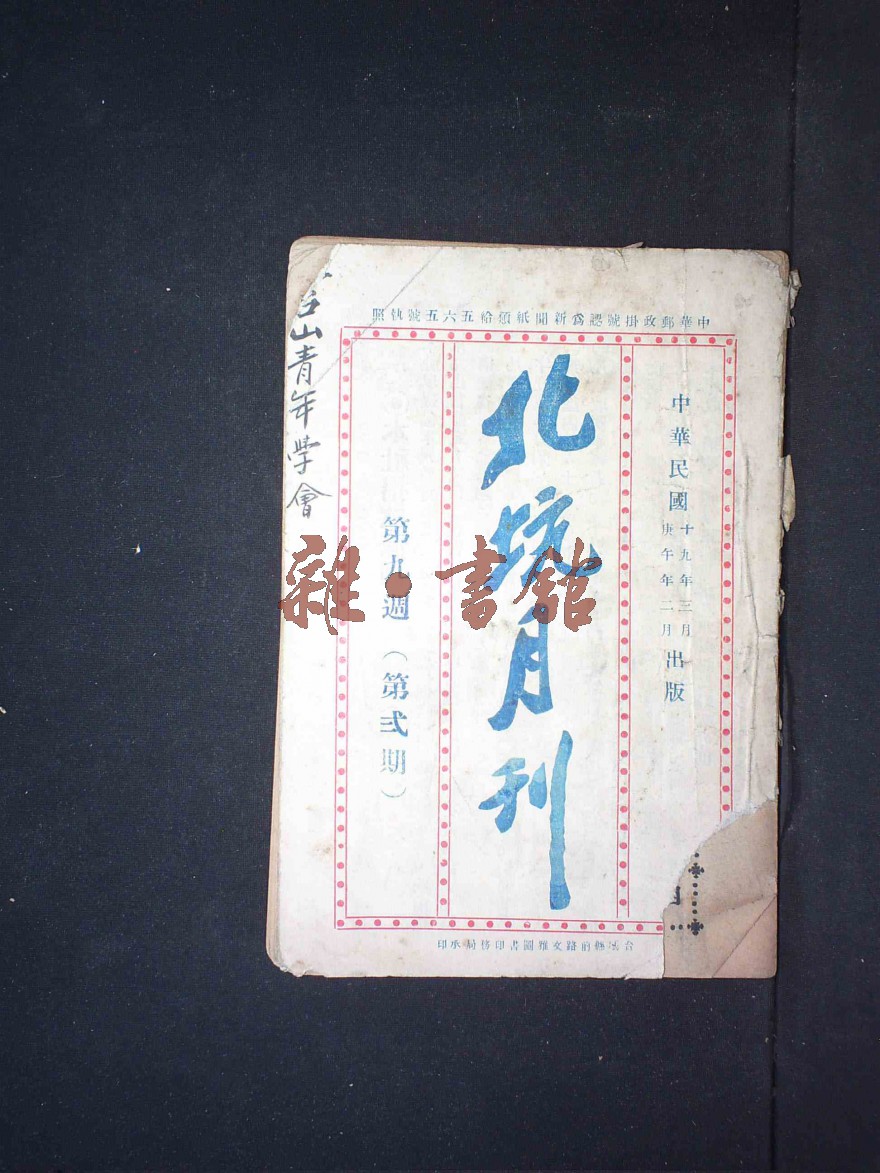 中華郵政掛號認爲新聞紙頒給五六五號執照
中華民國
十九年三月
庚午年二月
出版
北坑月刊
第九週（第弍期）
台山青年学會
雜·書館
縣前路文雅圖書印務局承印